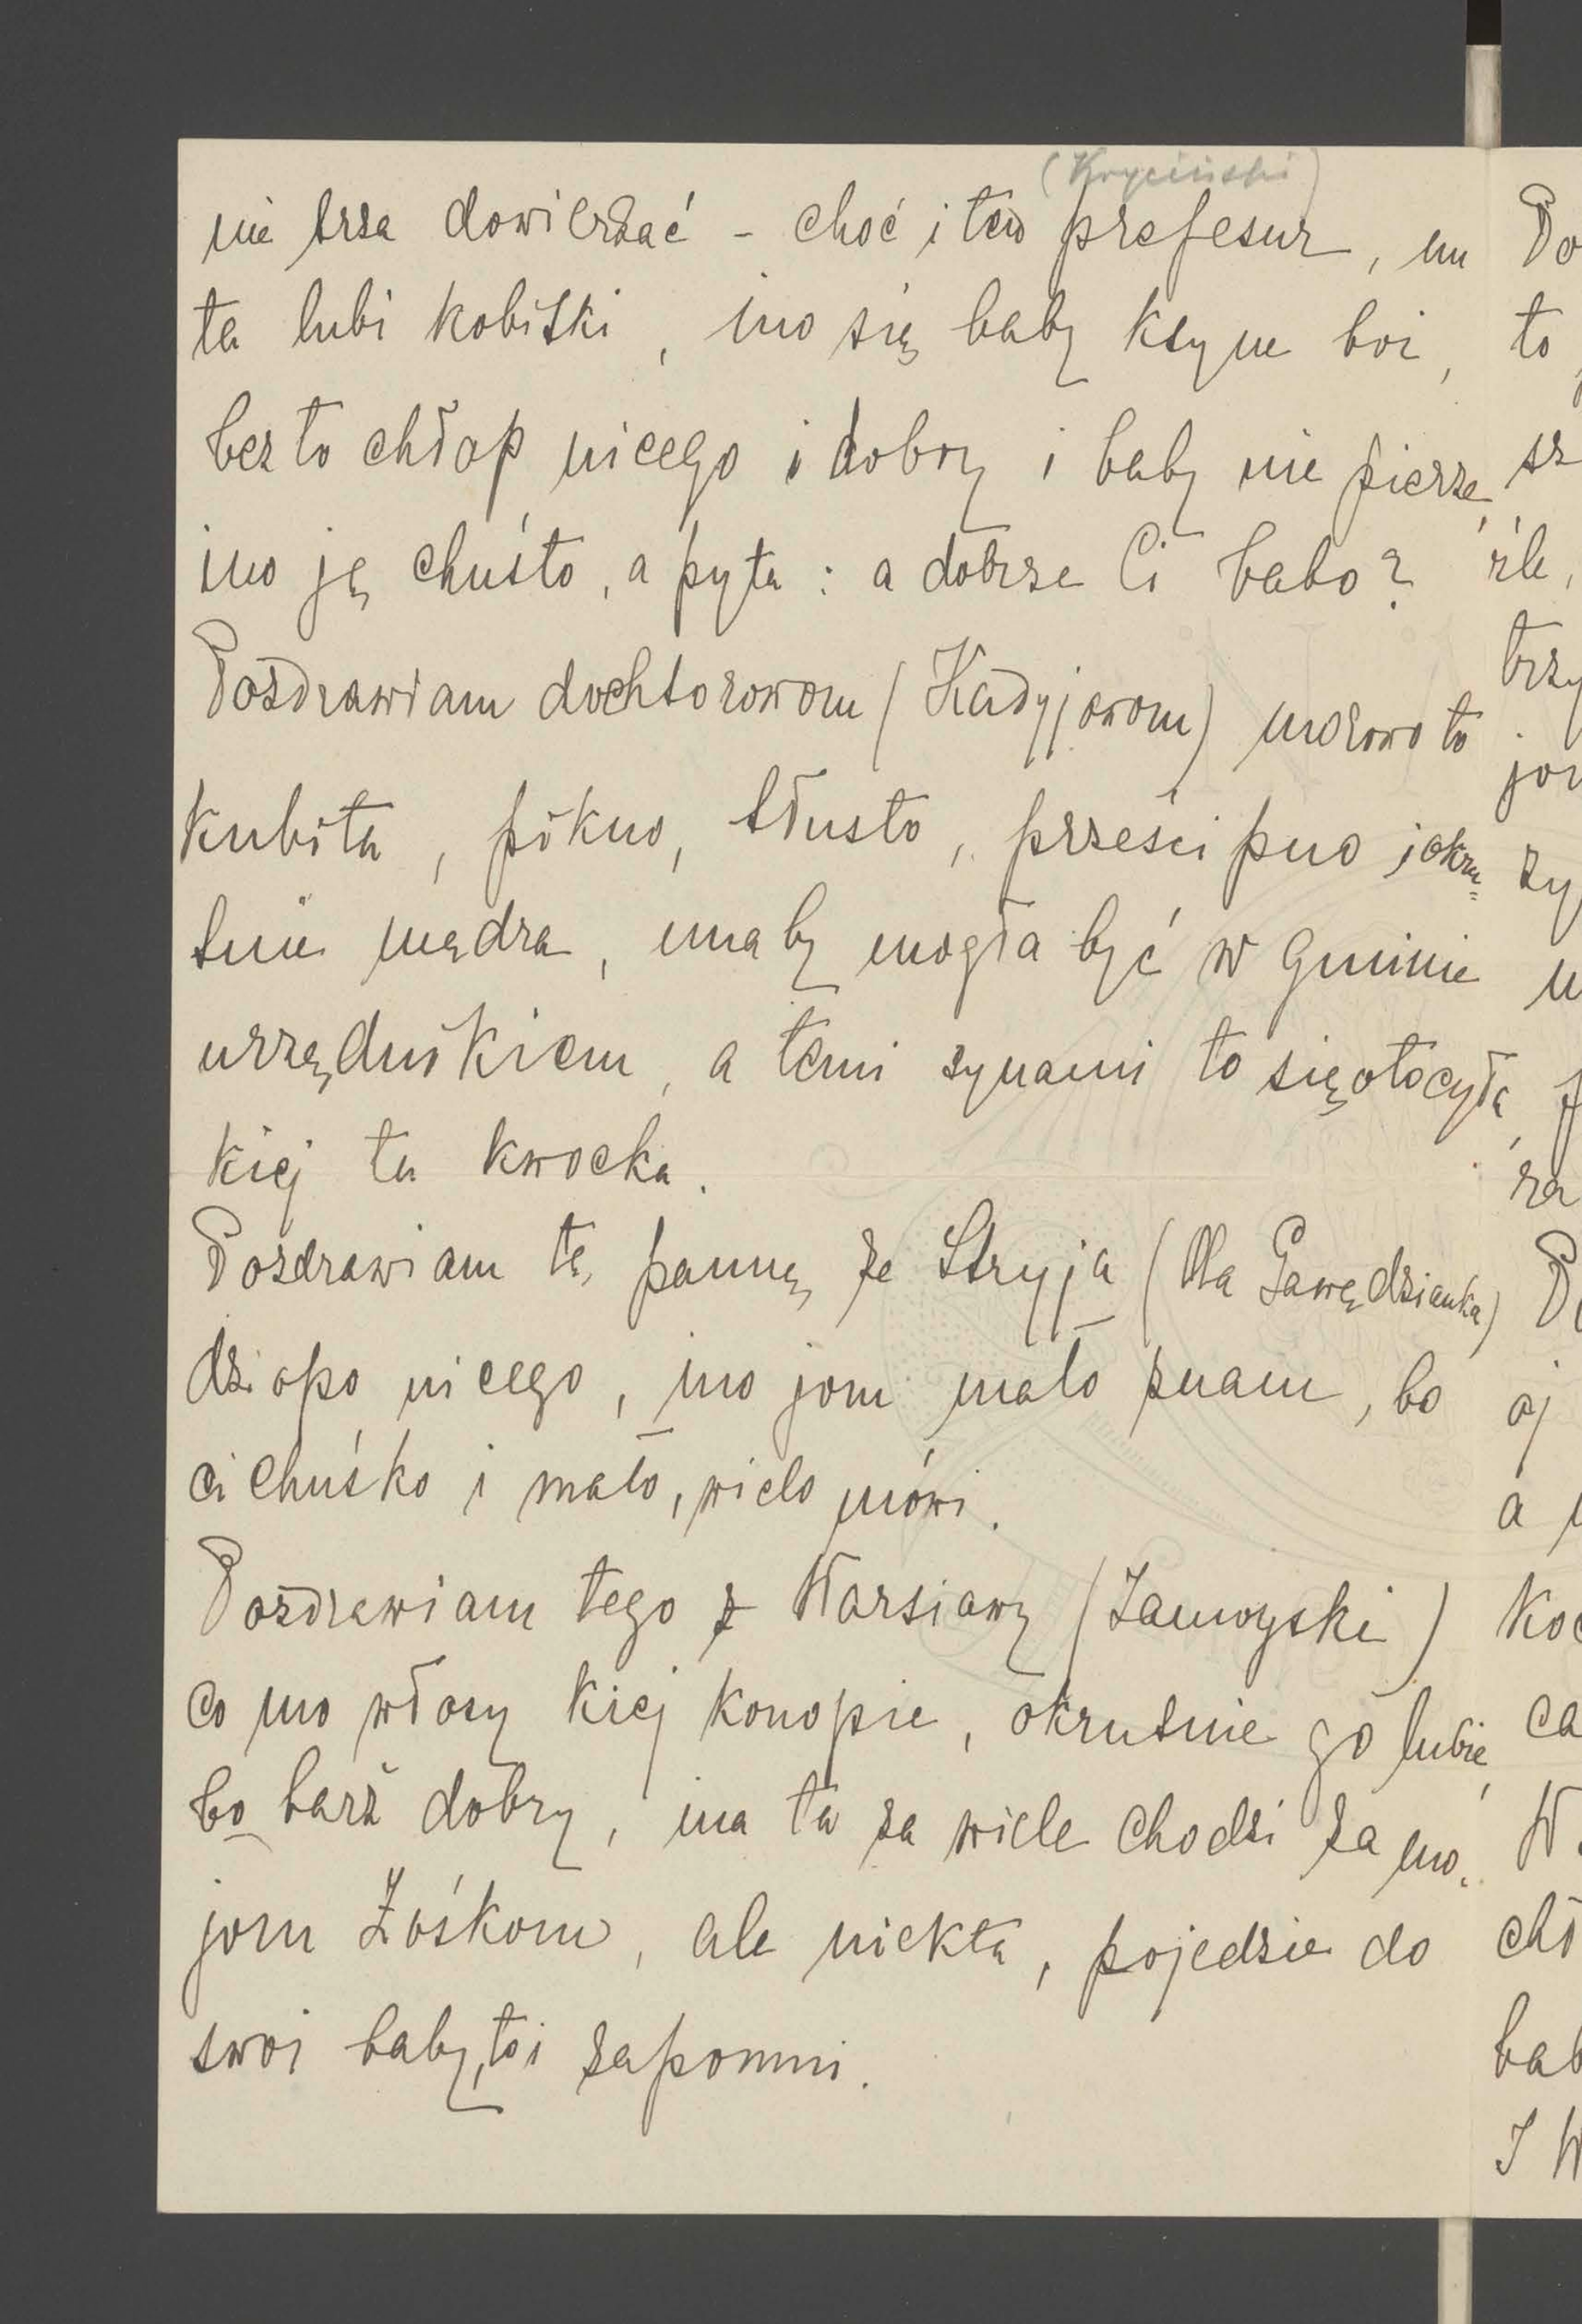 (Kryciński)
nie trza dowierzać - choć i ten prefesur, un
ta lubi kobitki, ino się baby krzyne boi,
bez to chłop nicego i dobry i baby nie pierze,
ino ję chuśto, a pyta: a dobrze Ci babo?
Pozdrawiam dochtorowom (Kadyjowom) morowo to
kubita, pikno, tłusto, prześcipno i okru=
tnie mądra, una by mogła być w gminie
urzędnikiem, a temi synami to się otocyła,
kiej ta kwocka.
Pozdrawiam tę pannę ze Stryja (Ola Gawędzianka)
dziopa nicego, ino jom mało znam, bo
cichuśko i mało, wielo mówi.
Pozdrawiam tego z Warsiawy (Zamoyski)
co mo włosy kiej konopie, okrutnie go lubię,
bo barz dobry, ina ta za wiele chodzi za mo-
jom Zośkom, ale niekta, pojedzie do
swoi baby, to i zapomni.